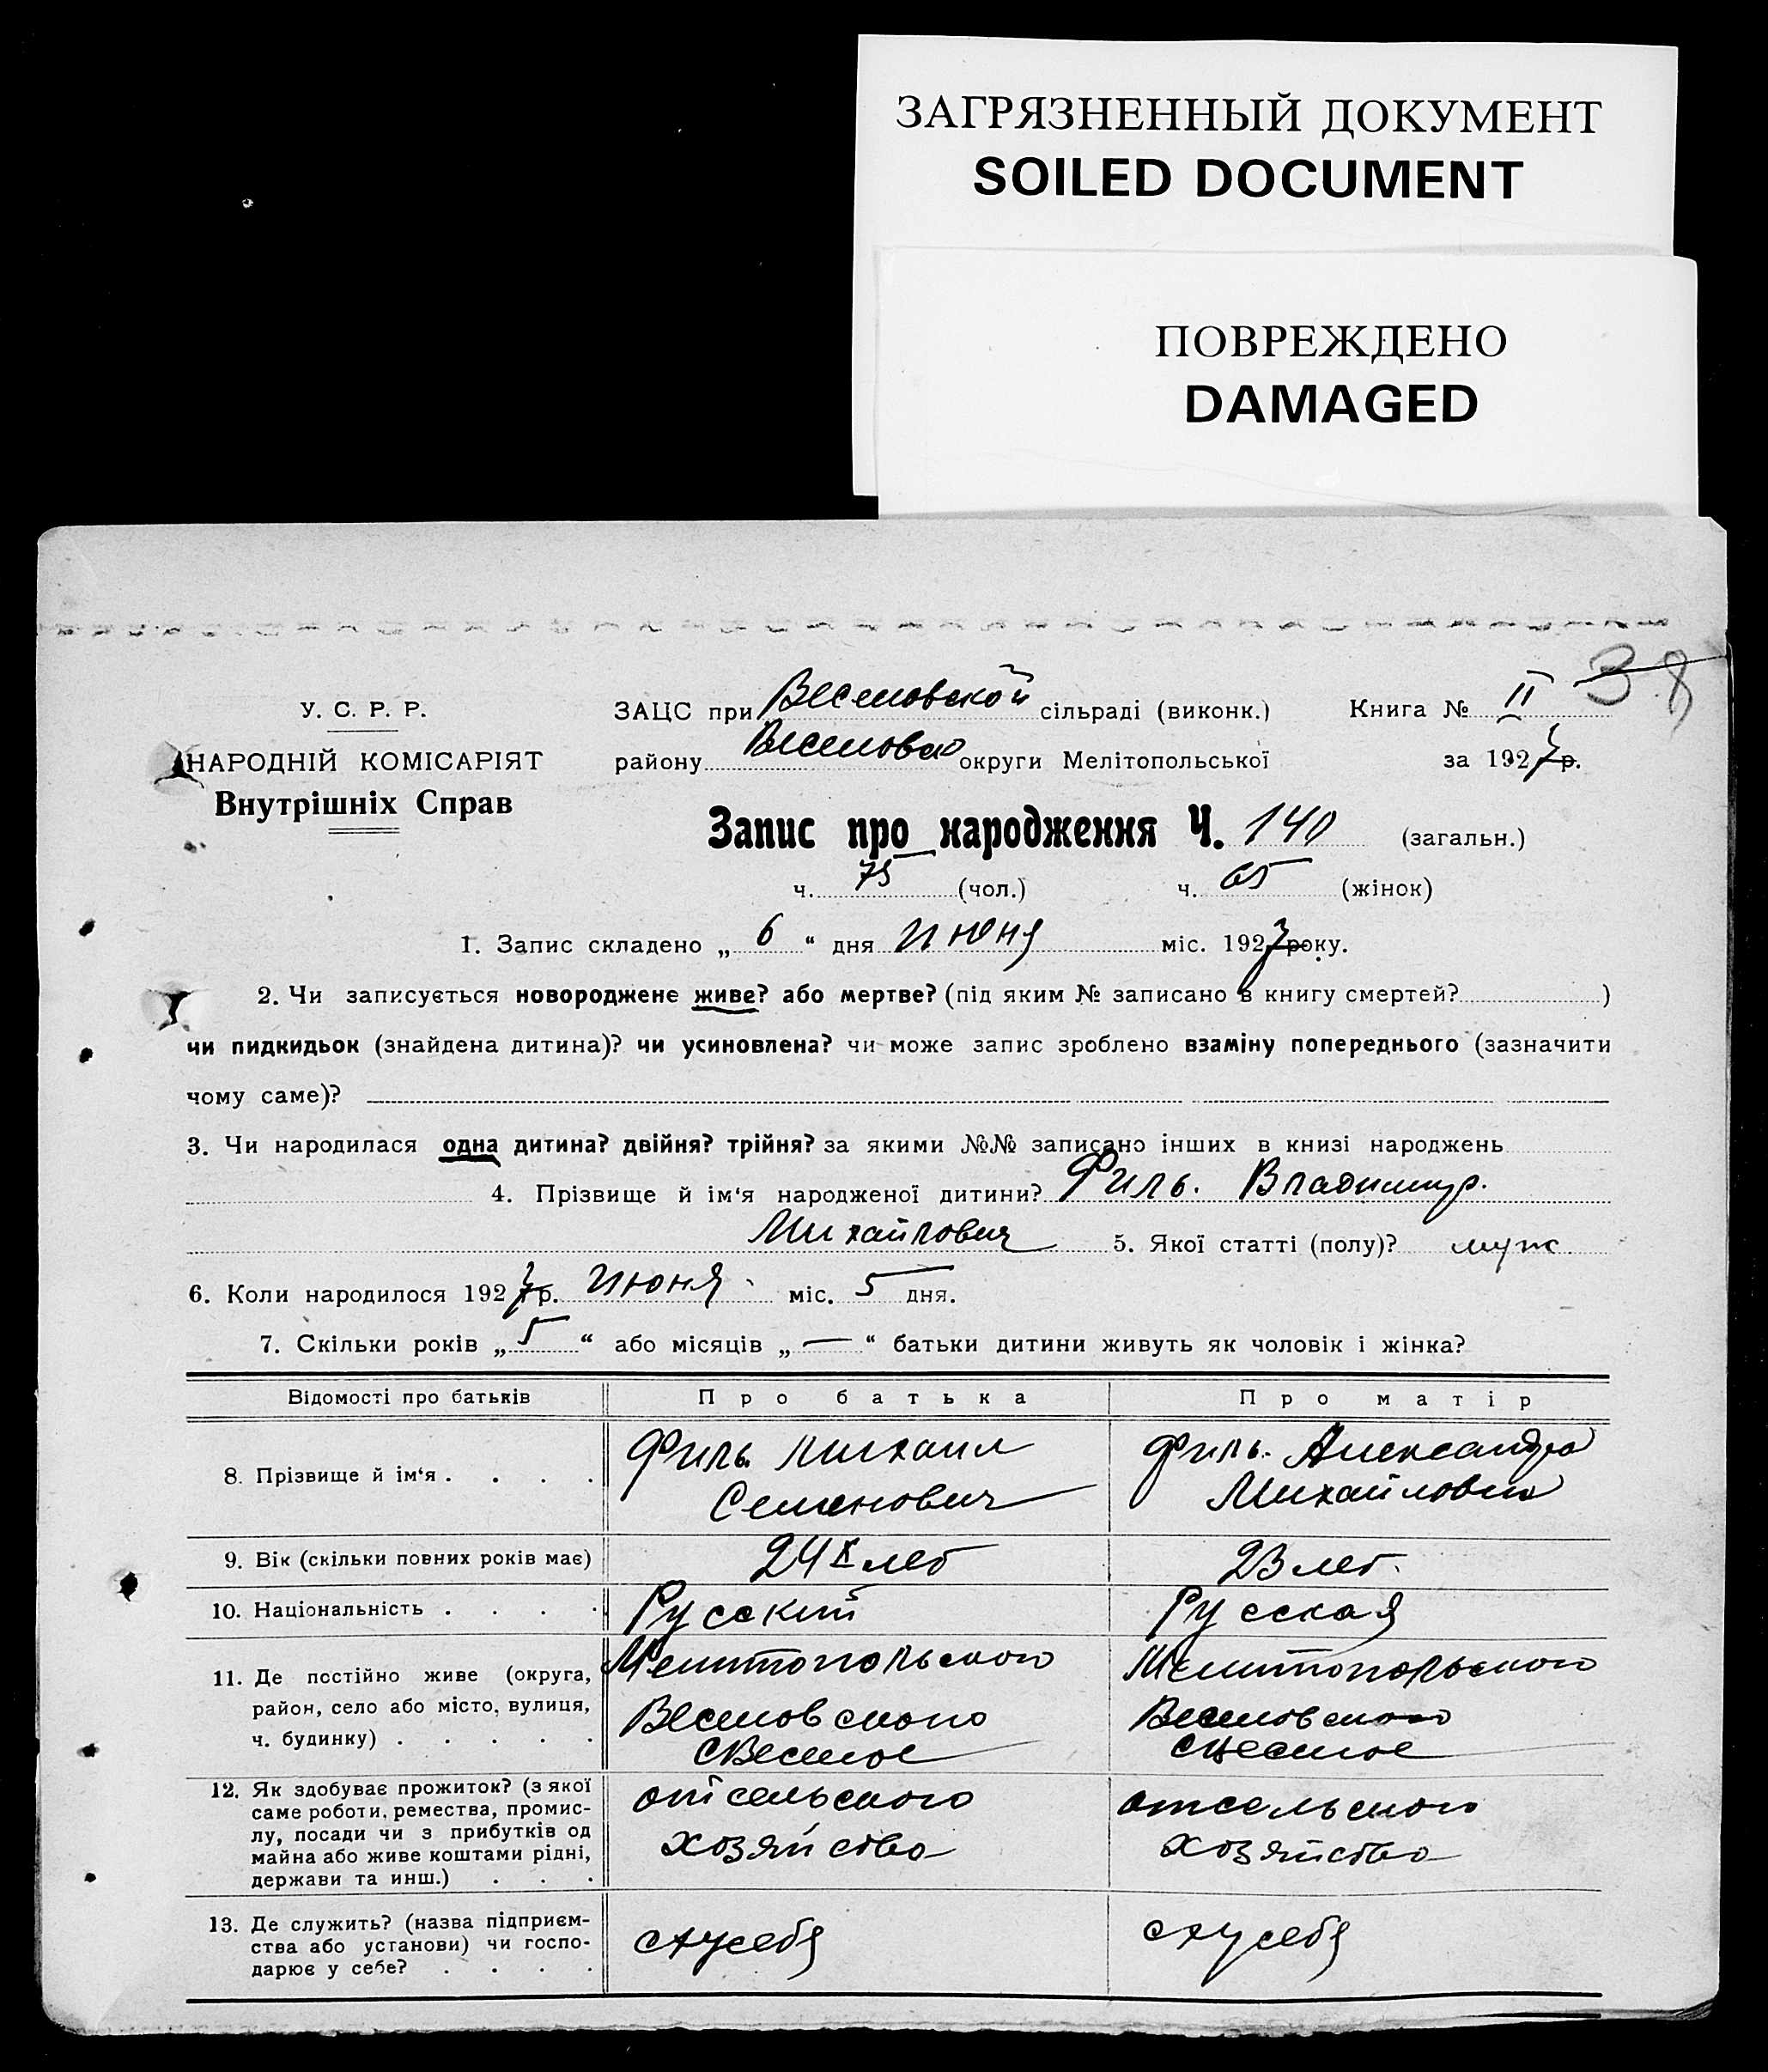 ЗАГРЯЗНЕННЫЙ ДОКУМЕНТ
SOILED DOCUMENT
ПОВРЕЖДЕНО
DAMAGED
38
У. С. Р. Р.
НАРОДНІЙ КОМІСАРІЯТ
Внутрішніх Справ
ЗАЦС при Веселовской сільраді (виконк.) Книга № II
району Веселовско округи Мелітопольської за 1927 р.
Запис про народження Ч. 140 (загальн.)
ч. 75 (чол.) ч. 65 (жінок)
1. Запис складено „ 6 “ дня Июня міс. 1927 року.
2. Чи записується новороджене живе? або мертве? (під яким № записано в книгу смертей? )
чи пидкидьок (знайдена дитина)? чи усиновлена? чи може запис зроблено взаміну попереднього (зазначити
чому саме)?
3. Чи народилася одна дитина? двійня? трійня? за якими №№ записано інших в книзі народжень
4. Прізвище й ім‘я народженої дитини? Филь. Владимир.
Михайлович 5. Якої статті (полу)? муж.
6. Коли народилося 1927 р. Июня міс. 5 дня.
7. Скільки років „ 5 “ або місяців „ — “ батьки дитини живуть як чоловік і жінка?
Відомості про батьків Про батька Про матір
8. Прізвище й ім‘я . . . . Филь Михаил Филь. Александра
Семенович Михайловна
9. Вік (скільки повних років має) 24 х лет 23 лет.
10. Національність . . . . Русский Русская
11. Де постійно живе (округа, Мелитопольского Мелитопольского
район, село або місто, вулиця, Веселовского Веселовского
ч. будинку) . . . . . с Веселое с Веселое
12. Як здобуває прожиток? (з якої от сельского от сельского
саме роботи, ремества, промис-
лу, посади чи з прибутків од хозяйства хозяйства
майна або живе коштами рідні,
держави та инш.) . . .
13. Де служить? (назва підприєм-
ства або установи) чи госпо-
дарює у себе? . . . .